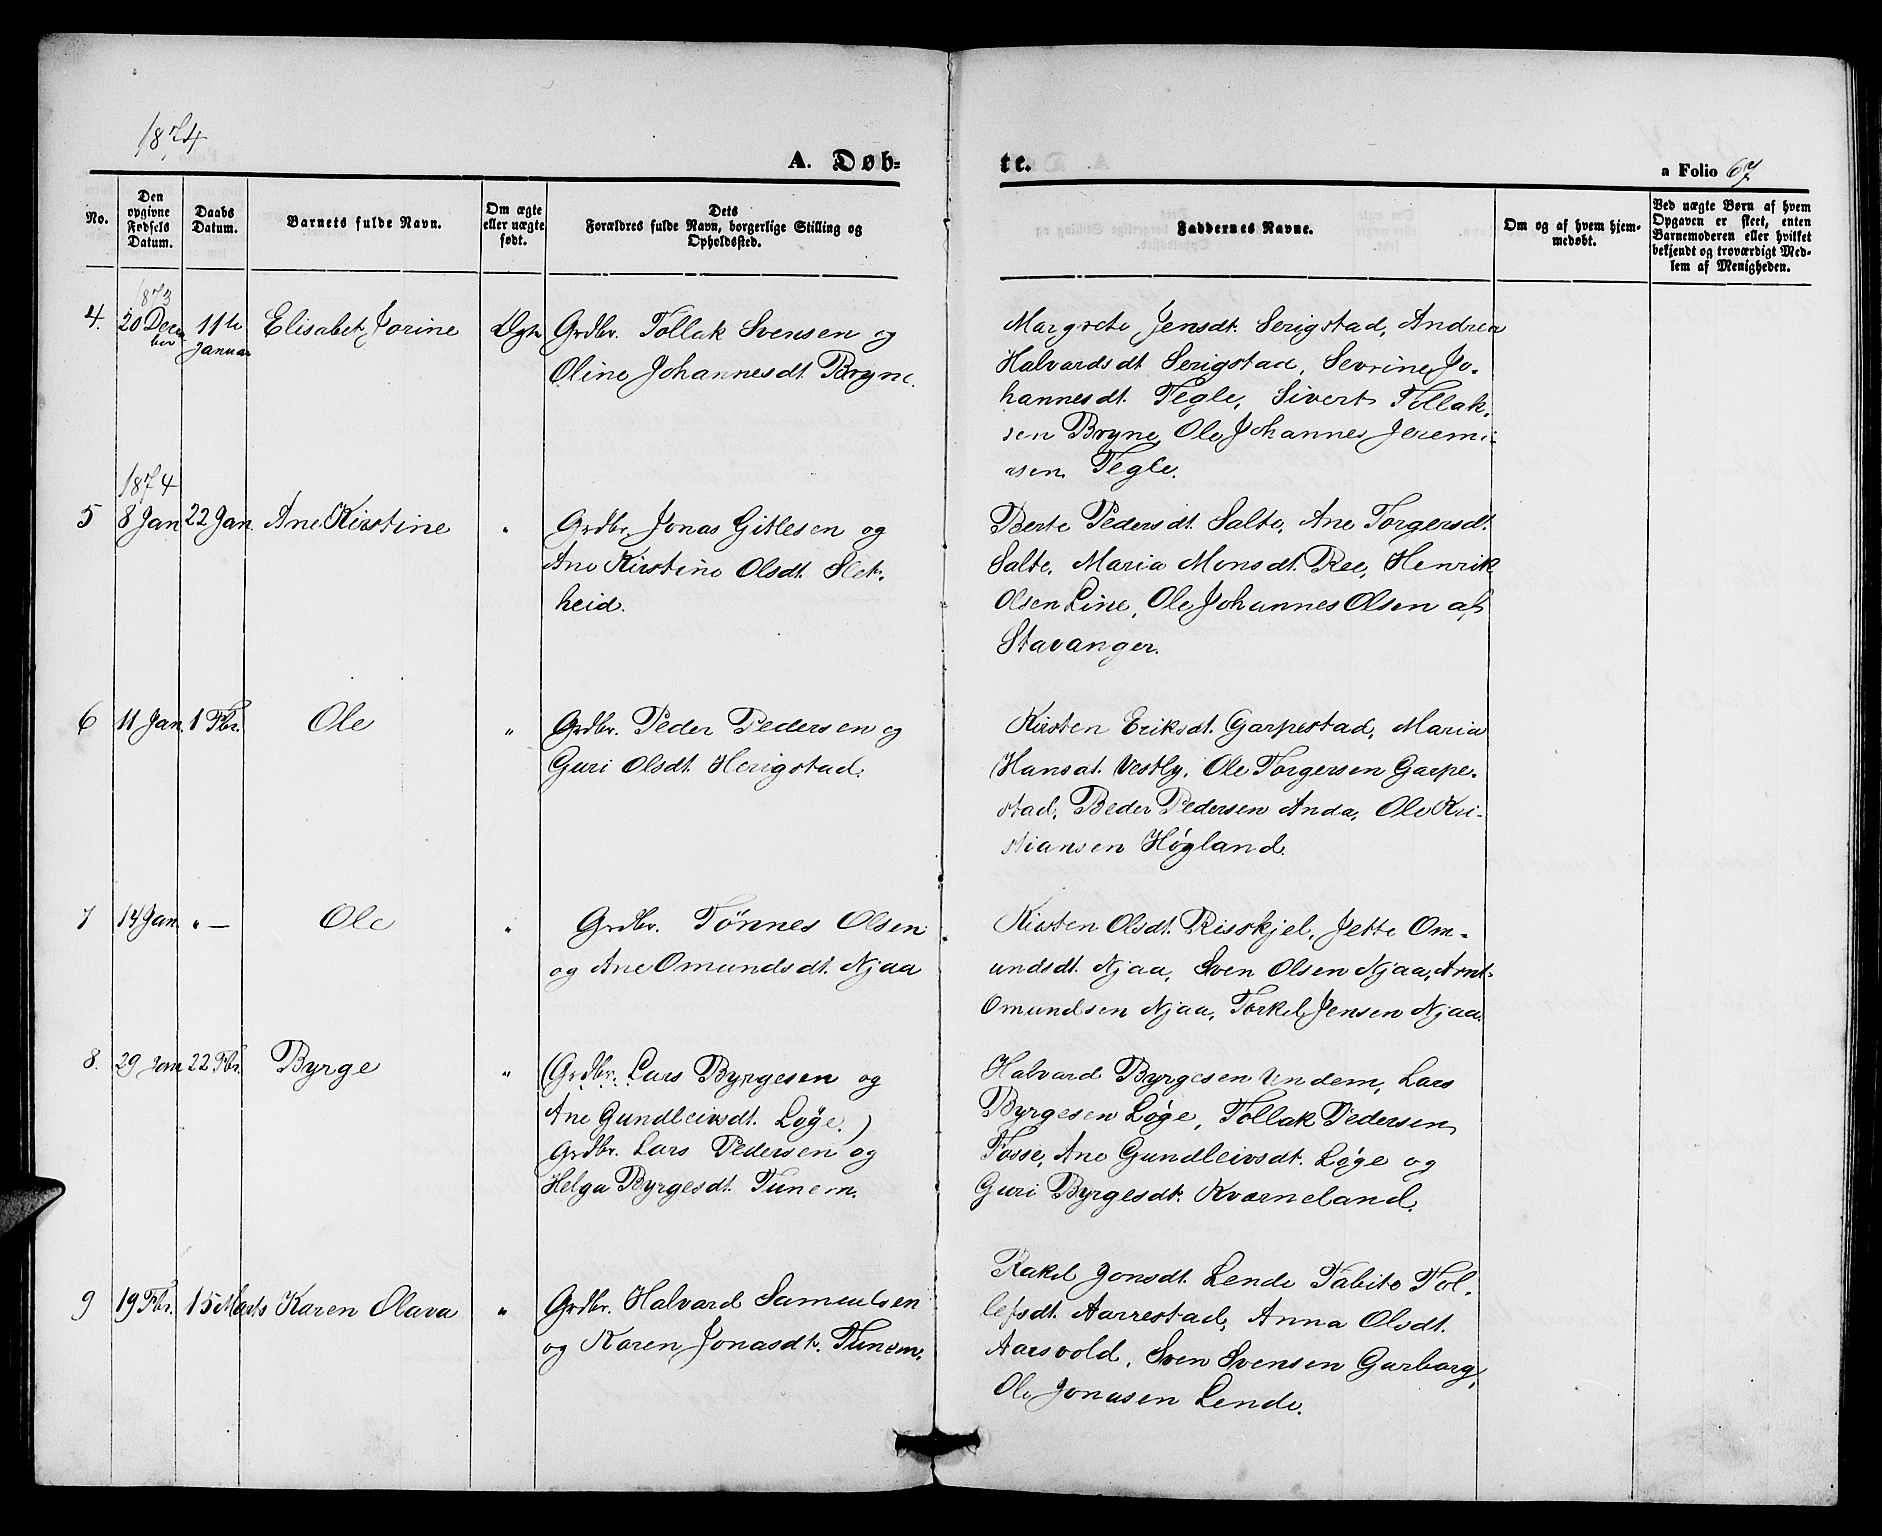 1874
A. Døb=
te.
a Folio 67
No.
Den opgivne Fødsels Datum.
Daabs Datum.
Barnets fulde Navn.
Om ægte eller uægte født.
Dets Forældres fulde Navn, borgerlige Stilling og Opholdssted.
Faddernes Navne.
Om og af hvem hjemmedøbt.
Ved uægte Børn af hvem Opgaven er skeet, enten Barnemoderen eller hvilket bekjendt og troværdigt Medlem af Menigheden.
1873
4. 20 December 11te Januar Elisabet Jorine Ægte Grdbr. Tollak Svensen og
Oline Johannesdt. Bryne.
Margrete Jensdt. Serigstad, Andrea
Halvardsdt Serigstad, Sevrine Jo-
hannesdt. Tegle, Sivert Tollak-
sen Bryne, Ole Johannes Jeremi-
asen Tegle.
1874
5 8 Jan 22 Jan Ane Kirstine " Grdbr. Jonas Gitlesen og
Ane Kirstine Olsdt. Slet-
heid.
Berte Pedersdt. Salte, Ane Torgersdt.
Salte, Maria Monsdt. Ree, Henrik
Olsen Line, Ole Johannes Olsen af
Stavanger.
6 11 Jan. 1 Fbr. Ole " Grdbr. Peder Pedersen og
Guri Olsdt. Herigstad.
Kirsten Eriksdt. Garpestad, Maria
Hansdt. Vestly, Ole Torgersen Garpe-
stad, Peder Pedersen Anda, Ole Kri-
stiansen Høgland.
7 14 Jan. " — Ole " Grdbr. Tönnes Olsen
og Ane Omundsdt. Njaa
Kirsten Olsdt. Risskjel, Jette Om-
undsdt. Njaa, Sven Olsen Njaa, Arnt
Omundsen Njaa, Torkel Jensen Njaa.
8. 29 Jan 22 Fbr. Byrge " (Grdbr. Lars Byrgesen og
Ane Gundleivsdt. Löge.)
Grdbr. Lars Pedersen og
Helga Byrgesdt. Tunem.
Halvard Byrgesen Undem, Lars
Byrgesen Løge, Tollak Pedersen
Fosse, Ane Gundleivsdt. Løge og
Guri Byrgesdt. Kværneland.
9 19 Fbr. 15 Marts Karen Olava " Grdbr. Halvard Samuelsen
og Karen Jonasdt. Tunem.
Rakel Jonsdt. Lende Tabite Tol-
lefsdt. Aarrestad, Anna Olsdt.
Aarsvold, Sven Svensen Garborg,
Ole Jonasen Lende.